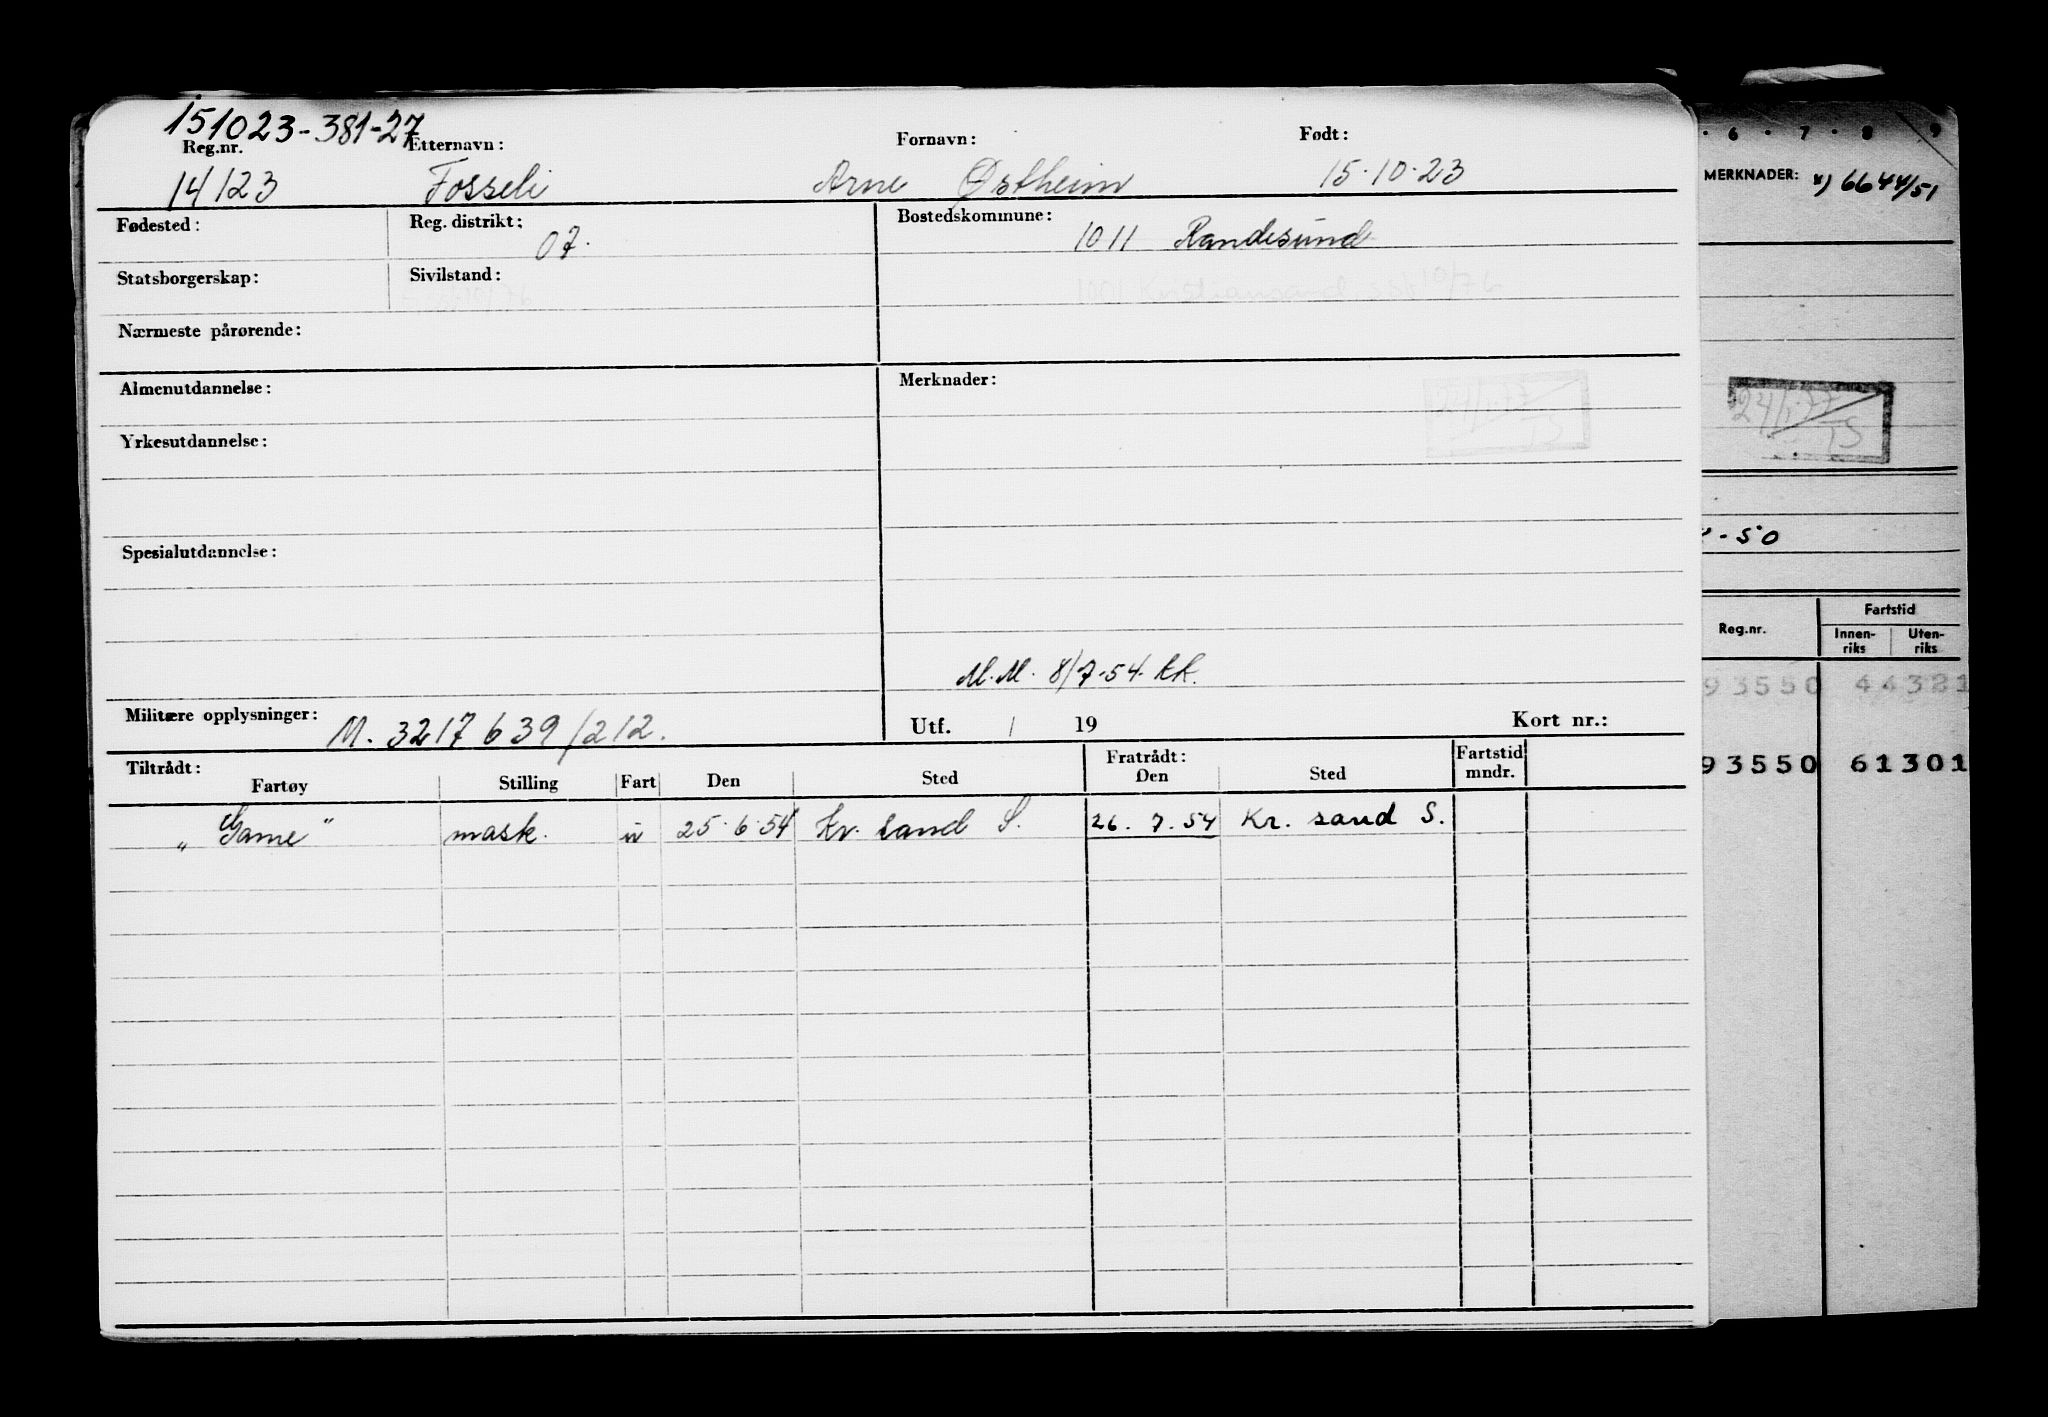 151023-381-27
Reg.nr. Etternavn: Fornavn: Født:
14/123 Fosseli Arne Østheim 15.10.23
Fødested: Reg. distrikt: 07. Bostedskommune: 1011 Randesund
Statsborgerskap: Sivilstand:
Nærmeste pårørende:
Almenutdannelse: Merknader:
Yrkesutdannelse:
Spesialutdannelse:
M.M. 8/7-54. kk.
Militære opplysninger: M. 3217639/212. Utf. / 19 Kort nr.:
Tiltrådt: Fratrådt: Fartstid
Fartøy Stilling Fart Den Sted Den Sted mndr.
„Game” mask. u 25.6.54 Kr. sand S. 26.7.54 Kr. sand S.
6 · 7 · 8 9
MERKNADER: *) 6644/51
24/1-77
TS
-50
Reg.nr. Fartstid
Innen-riks Uten-riks
93550 44321
93550 61301